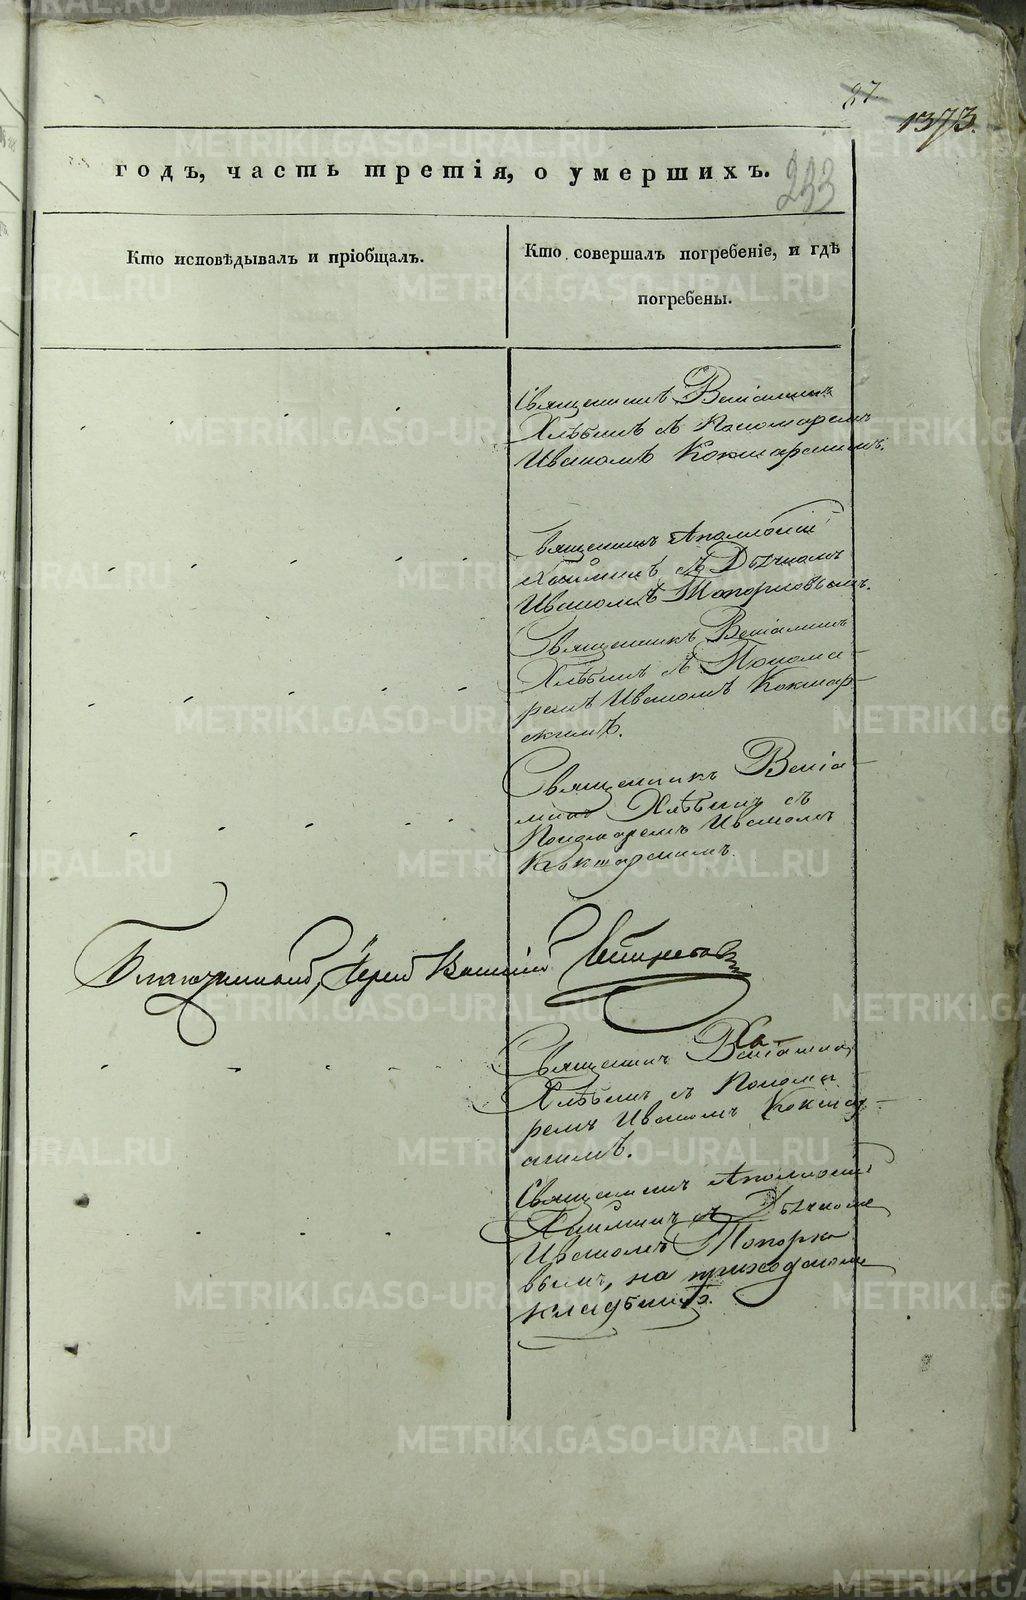 87
1373.
233
годъ, часть третія, о умершихъ.
Кто исповѣдывалъ и пріобщалъ.
Кто совершалъ погребеніе, и гдѣ
погребены.
Священникъ Веніаминъ
Хлѣбинъ съ Пономаремъ
Иваномъ Кокшарскимъ.
Священникъ Аполлосій
съ Дьячкомъ
Иваномъ Топорковымъ.
Священникъ Веніаминъ
Хлѣбинъ съ Понома-
ремъ Иваномъ Кокшар-
скимъ.
Священникъ Веніа-
минъ Хлѣбинъ съ
Пономаремъ Иваномъ
Кокшарскимъ.
Благочинный, Іерей Василій
Священникъ Веніаминъ
Хлѣбинъ съ Понома
ремъ Иваномъ Кокшар-
скимъ.
Священникъ Аполлосій
съ Дьячкомъ
Иваномъ Топорко
вымъ, на приходскомъ
кладбищѣ.
METRIKI.GASO-URAL.RU